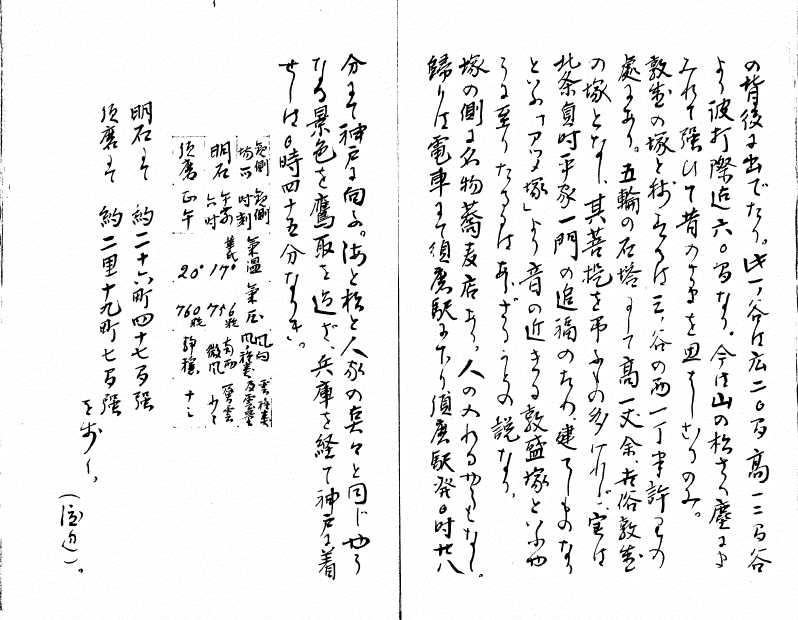 の背後に出でたり。此一ノ谷は広二〇間高一二間谷
より波打際迄六〇間なり。今は山の松さへ塵にま
みれて強ひて昔のさまを思はしむるのみ。
敦盛の塚と称するは三ノ谷の西一丁半許りの
処にあり。五輪の石塔にして高一丈余、世俗敦盛
の塚となし、其菩提を弔ふもの多けれど、実は
北条貞時平家一門の追福のため建てしものなり
といふ「アツメ塚」より音の近きる敦盛塚といふや
うに至りたるにはあらざるかとの説なり。
塚の側に名物蕎麦店あり。人の入れるやうもなし。
帰りは電車にて須磨駅に下り須磨駅発〇時廿八
分にて神戸に向ふ。海と松と人家の
と同じやう
なる景色を鷹取と過ぎ、兵庫を経て神戸に着
せしは〇時四十五分なりき。
観測場所 観測時刻 気温 気圧 風向
明石 午前六時 17° 756粍 南西微風
須磨 正午 20° 760粍 静穏
明石にて 約二十六町四十七間強
須磨にて 約二里十九町七間強
を歩く。
(渡辺)。